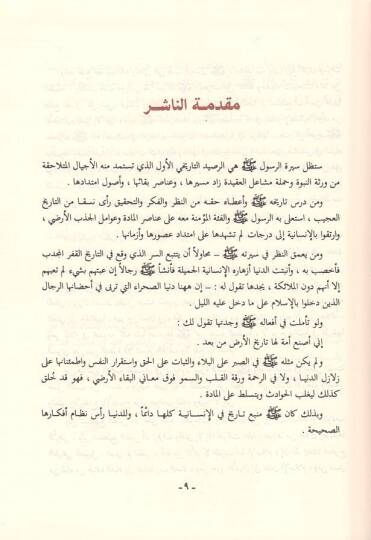 مقدمة الناشر
ستظل سيرة الرسول ﷺ هي الرصيد التاريخي الأول الذي تستمد منه الأجيال المتلاحقة
من ورثة النبوة وحملة مشاعل العقيدة زاد مسيرها ، وعناصر بقائها ، وأصول امتدادها .
ومن درس تاريخه ﷺ وأعطاه حقه من النظر والفكر والتحقيق رأى نسقا من التاريخ
العجيب ، استعلى به الرسول ﷺ والفئة المؤمنة معه على عناصر المادة وعوامل الجذب الأرضي ،
وارتقوا بالإنسانية إلى درجات لم تشهدها على امتداد عصورها وأزمانها .
ومن يعمق النظر في سيرته ﷺ – محاولاً أن يتتبع السر الذي وقع في التاريخ القفر المجدب
فأخصب به ، وأنبتت الدنيا أزهاره الإنسانية الجميلة فأنشأ ﷺ رجالاً إن عبتهم بشيء لم تعبهم
إلا أنهم دون الملائكة ، يجدها تقول له : – إن ههنا دنيا الصحراء التي تربى في أحضانها الرجال
الذين دخلوا بالإسلام على ما دخل عليه الليل .
ولو تأملت في أفعاله ﷺ وجدتها تقول لك :
إني أصنع أمة لها تاريخ الأرض من بعد .
ولم يكن مثله ﷺ في الصبر على البلاء والثبات على الحق واستقرار النفس واطمئنانها على
زلازل الدنيـا ، ولا في الرحمة ورقة القلب والسمو فوق معاني البقاء الأرضي ، فهو قد خُلق
كذلك ليغلب الحوادث ويتسلط على المادة .
وبذلك كان ﷺ منبع تاريخ في الإنسانية كلهـا دائماً ، وللدنيا رأس نظـام أفكـارها
الصحيحة .
- ٩ -